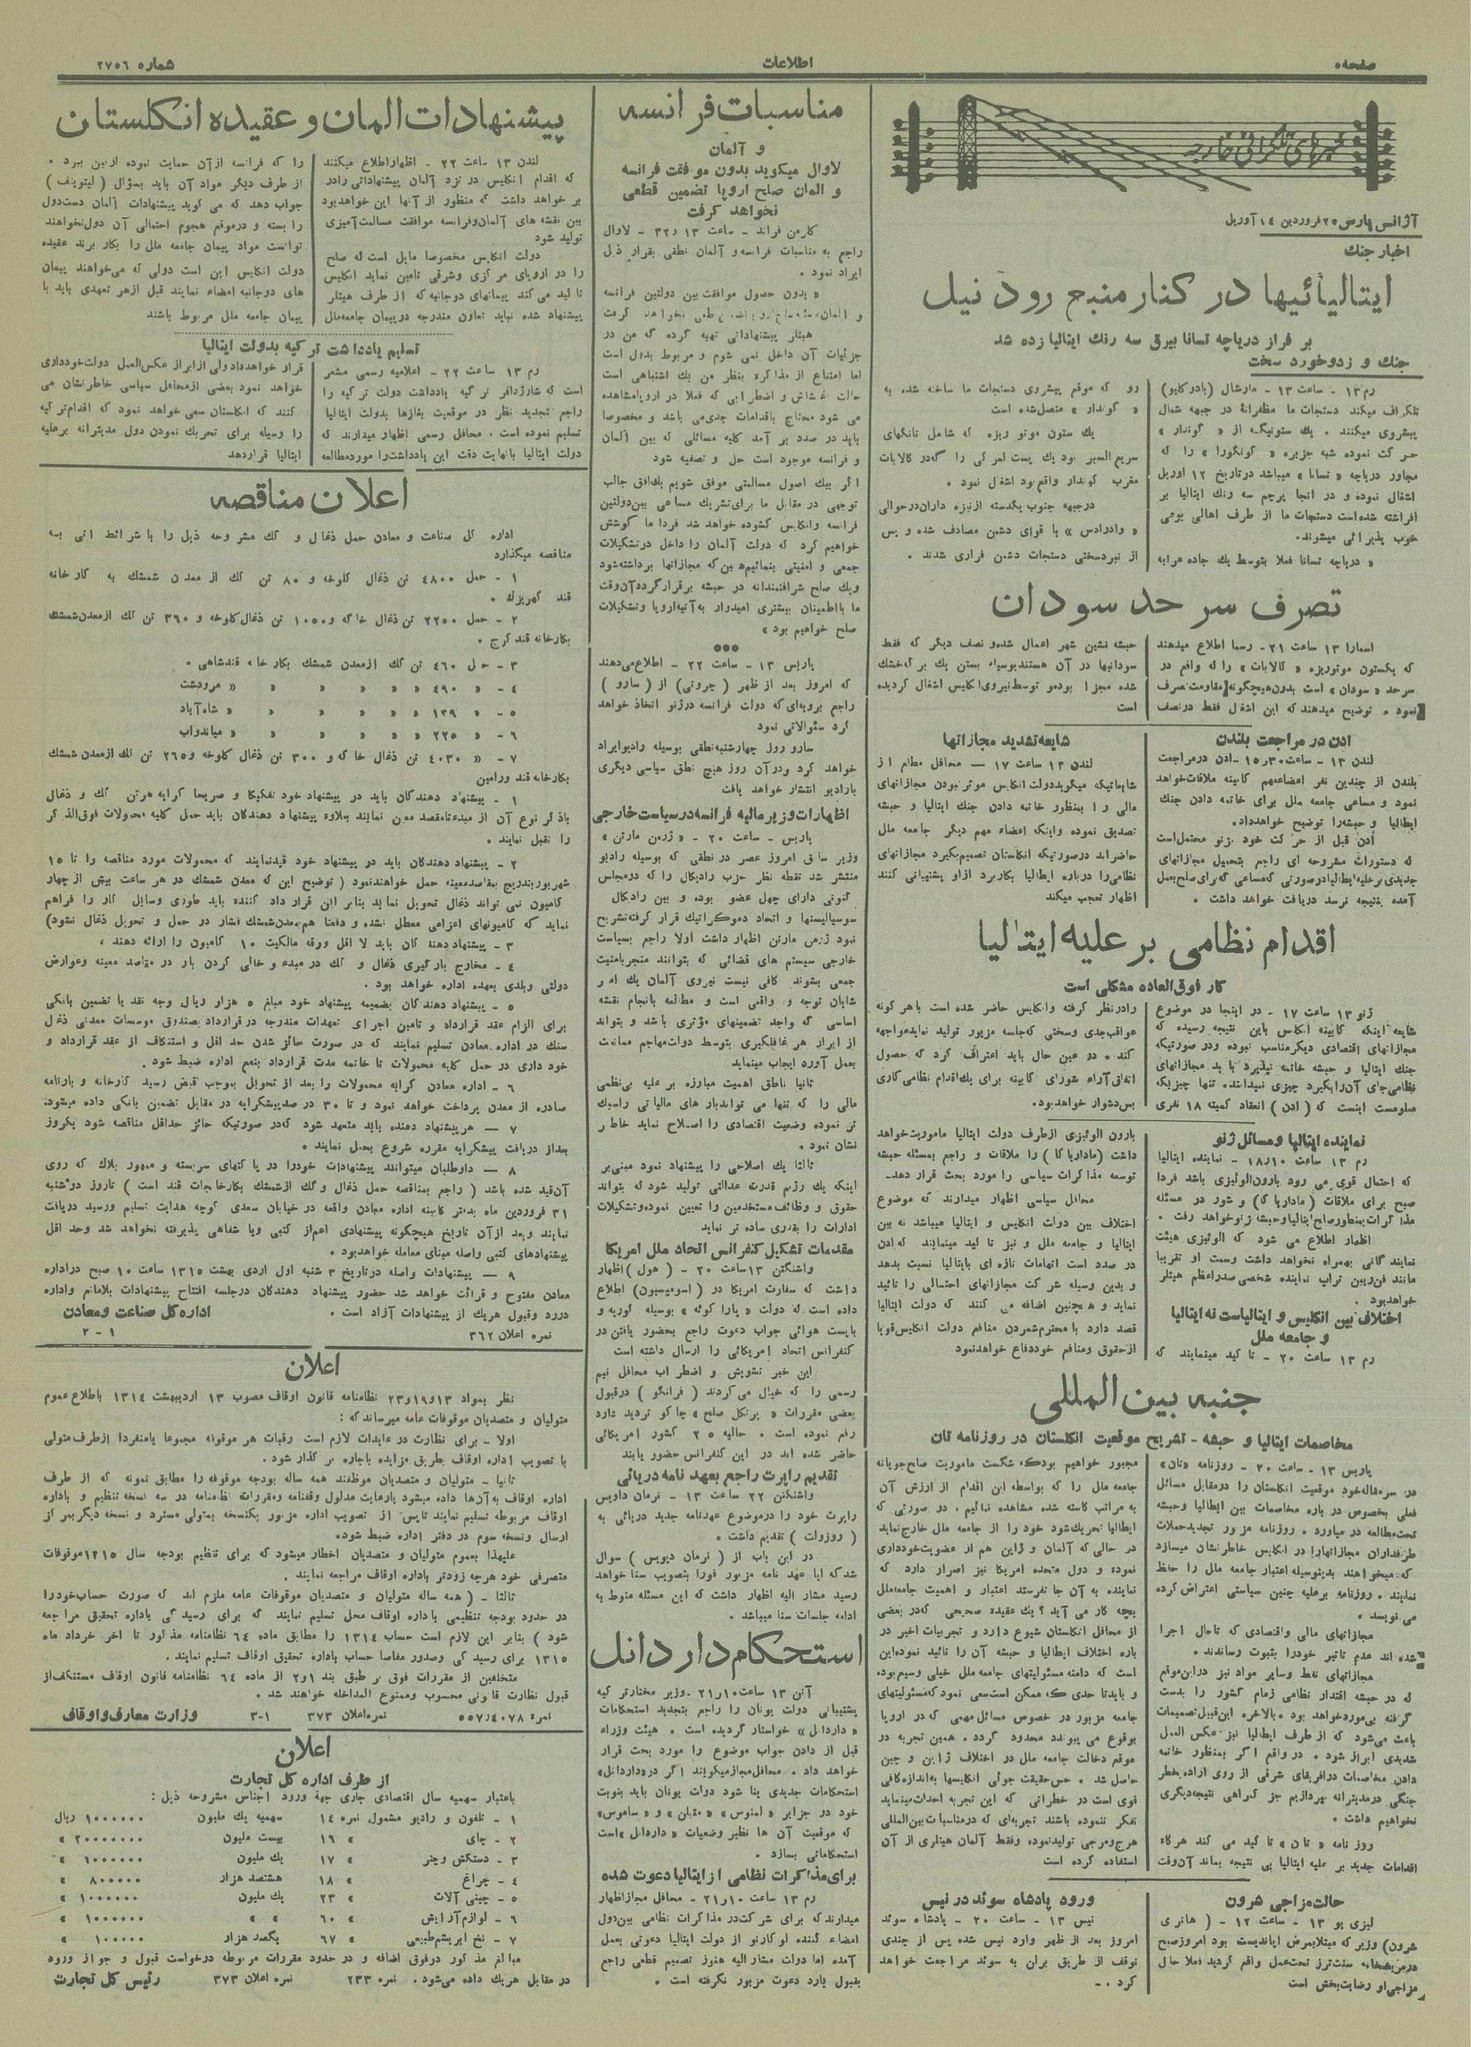 صفحه۵
اطلاعات
شماره ۲۷۵۶
خبرهای تلگرافی خارجه
آژانس پارس ۲۵ فروردین ۱۴ آوریل
اخبار جنك
ایتالیائیها در کنار منبع رود نیل
بر فراز دریاچه تسانا بیرق سه رنك ایتالیا زده شد
جنك و زدوخورد سخت
رم ۱۳ - ساعت ۱۳ - مارشال (بادوکلیو)
تلگراف میکند دستجات ما مظفرانهٔ در جبهه شمال
پیشروی میکنند . یك ستونیکه از « گوندار »
حرکت نموده شبه جزیره « گونگورا » را که
مجاور دریاچه « تسانا » میباشد درتاریخ ۱۲ اوریل
اشغال نموده و در انجا پرچم سه رنك ایتالیا بر
افراشته شده‌است دستجات ما از طرف اهالی بومی
خوب پذیرائی میشوند.
« دریاچه تسانا فعلا بتوسط یك جاده عرابه
رو که موقع پیشروی دستجات ما ساخته شده به
« گوندار » متصل‌شده است
یك ستون موتو ریزه که شامل تانگهای
سریع‌السیر بود یك پست گمرکی را که‌در کالابات
مغرب گوندار واقع‌بود اشغال نمود .
درجبهه جنوب یکدسته ازنیزه داران‌درحوالی
« وادرادس » با قوای دشمن مصادف شده و پس
از نبردسختی دستجات دشمن فراری شدند .
تصرف سرحد سودان
اسمارا ۱۳ ساعت ۲۱- رسما اطلاع میدهند
که یکستون موتوریزه « کالابات » را که واقع در
سرحد « سودان » است بدون‌هیچگونه مقاومت‌تصرف
نمود . توضیح میدهند که این اشغال فقط درنصف
حبشه نشین شهر اعمال شده‌و نصف دیگر که فقط
سودانیها در آن هستندبوسیله بستن پل بر که‌خشك
شده مجزا بوده‌و توسط‌نیروی‌انگلیس اشغال گردیده
است
ادن در مراجعت بلندن
لندن ۱۳ - ساعت ۱۵٫۳۰ - ادن درمراجعت
بلندن از چندین نفر اعضاءمهم کابینه ملاقات‌خواهد
نمود و مساعی جامعه ملل برای خاتمه دادن جنك
ایطالیا و حبشه‌را توضیح خواهدداد.
اُدن قبل از حرکت خود ژنو محتمل‌است
که دستورات مشروحه ای راجع بتحمیل مجازاتهای
جدیدی‌برعلیه‌ایطالیادرصورتی که‌مساعی که‌برای‌صلح‌بعمل
آمده بنتیجه نرسد دریافت خواهد داشت .
شایعه تشدید مجازاتها
لندن ۱۳ ساعت ۱۷ — محافل مطلع از
شایعاتیکه میگوید‌دولت انگلیس موثرنبودن مجازاتهای
مالی را بمنظور خاتمه دادن جنك ایتالیا و حبشه
تصدیق نموده واینکه اعضاء مهم دیگر جامعه ملل
حاضراند درصورتیکه انگلستان تصمیم‌بگیرد مجازاتهای
نظامی‌را درباره ایطالیا بکاربرد ازاو پشتیبانی کنند
اظهار تعجب میکند
اقدام نظامی بر علیه ایتالیا
کار فوق‌العاده مشکلی است
ژنو ۱۳ ساعت ۱۷ - در اینجا در موضوع
شایعه اینکه کابینه انگلیس باین نتیجه رسیده که
مجازاتهای اقتصادی دیگرمناسب نبوده ودر صورتیکه
جنك ایتالیا و حبشه خاتمه نپذیرد باید مجازاتهای
نظامی‌جای آن‌رابگیرد چیزی نمیدانند. تنها چیزیکه
معلومست اینست که (ادن) انعقاد کمیته ۱۸ نفری
رادرنظر گرفته وانگلیس حاضر شده است باهر گونه
عواقب‌جدی وسختی که‌جلسه مزبور تولید نمایدمواجهه
کند . در عین حال باید اعتراف کرد که حصول
اتفاق‌آراء شورای کابینه برای یك‌اقدام نظامی‌کاری
بس‌دشوار خواهدبود.
نماینده ایتالیا ومسائل ژنو
رم ۱۳ ساعت ۱۸٫۱۰ - نماینده ایتالیا
که احتمال قوی می رود بارون‌الوئیزی باشد فردا
صبح برای ملاقات (ماداریاگا) و شور در مسئله
مذاکرات‌بمنظورصلح‌ایتالیاوحبشه ژنوخواهد رفت .
اظهار اطلاع می شود که الوئیزی هیئت
نمایندگانی بهمراه نخواهد داشت وسمت او تقریبا
مانند فن‌ریبن تراپ نماینده شخصی‌صدراعظم هیتلر
خواهدبود .
بارون الوئیزی ازطرف دولت ایتالیا ماموریت‌خواهد
داشت (ماداریاگا) را ملاقات و راجع بمسئله حبشه
توسعه مذاکرات سیاسی را مورد بحث قرار دهد.
اختلاف بین انگلیس و ایتالیاست نه ایتالیا
و جامعه ملل
رم ۱۳ ساعت ۲۰ - تا کید مینمایند که
محافل سیاسی اظهار میدارند که موضوع
اختلاف بین دولت انگلیس و ایتالیا میباشد نه بین
ایتالیا و جامعه ملل و نیز تا کید مینمایند که‌ادن
در صدد است اتهامات تازه ای بایتالیا نسبت بدهد
و بدین وسیله شرکت مجازاتهای احتمالی را تائید
نماید و همچنین اضافه می کنند که دولت ایتالیا
قصد دارد با محترم‌شمردن منافع دولت انگلیس‌قویا
ازحقوق ومنافع خوددفاع خواهدنمود
جنبه بین المللی
مخاصمات ایتالیا و حبشه - تشریح موقعیت انگلستان در روزنامه تان
پاریس ۱۳ - ساعت ۲۰ - روزنامه «تان»
در سرمقاله‌خود موقعیت انگلستان را درمقابل مسائل
فعلی بخصوص در باره مخاصمات بین ایطالیا وحبشه
تحت‌مطالعه در میاورد . روزنامه مزبور تجدیدحملات
طرفداران مجازاتهارا در انگلیس خاطرنشان میسازد
که‌میخواهند بدینوسیله اعتبار جامعه ملل را حفظ
نمایند . روزنامه برعلیه چنین سیاستی اعتراض کرده
می نویسد .
مجازاتهای مالی واقتصادی که تاحال اجرا
شده اند عدم تاثیر خودرا بثبوت رسانده‌اند .
مجازاتهای نفط وسایر مواد نیز دراین‌موقع
که در حبشه اقتدار نظامی زمام کشور را بدست
گرفته بی‌موردخواهد بود . بالاخره این‌قبیل‌تصمیمات
باعث می‌شود که از طرف ایطالیا نیز عکس العمل
شدیدی ابراز شود . در واقع اگر بمنظور خاتمه
دادن مخاصمات درافریقای شرقی از روی اراده‌بخطر
جنگی درمدیترانه بپردازیم جز گمراهی نتیجه‌دیگری
نخواهیم داشت .
روزنامه « تان » تا کید می کند هرگاه
اقدامات جدید بر علیه ایطالیا بی نتیجه بماند آن‌وقت
مجبور خواهیم بودکه شکست ماموریت صلح‌جویانه
جامعه ملل را که بواسطه این اقدام از ارزش آن
به مراتب کاسته شده مشاهده نمائیم . در صورتی که
ایطالیا تحریك‌شود خود را از جامعه ملل خارج‌نماید
در حالی که آلمان و ژاپن هم از عضویت‌خودداری
نموده و دول متحده امریکا نیز اصرار دارد که
نماینده به آن جا نفرستد اعتبار و اهمیت جامعه‌ملل
بچه کار می آید ؟ یك عقیده صحیحی که‌در بعضی
از محافل انگلستان شیوع دارد و تجربیات اخیر در
باره اختلاف ایطالیا و حبشه آن را تائید نموده‌این
است که دامنه مسئولیتهای جامعه ملل خیلی وسیع‌بوده
و بایدتا حدی که ممکن است‌سعی نمود که‌مسئولیتهای
جامعه مزبور در خصوص مسائل مهمی که‌در اروپا
بوقوع می پیوندد محدود گردد . همین تجربه در
موقع دخالت جامعه ملل در اختلاف ژاپن و چین
حاصل شد . حس‌حقیقت جوئی انگلیسها به‌اندازه‌کافی
قوی است در خطراتی که این تجربه احداث‌مینماید
تفکر ننموده باشند تجربه‌ای که درمناسبات بین‌المللی
هرج‌ومرجی تولیدنموده وفقط آلمان هیتلری از آن
استفاده کرده است
حالت‌مزاجی شرون
لیزی یو ۱۳ - ساعت ۱۲ - ( هانری
شرون) وزیر که مبتلابمرض اپاندیست بود امروزصبح
درمریضخانه سنت‌ترز تحت‌عمل واقع گردید فعلا حال
مزاجی‌او رضایت‌بخش است
ورود پادشاه سوئد در نیس
نیس ۱۳ - ساعت ۲۰ - پادشاه سوئد
امروز بعد از ظهر وارد نیس شده پس از چندی
توقف از طریق برلن به سوئد مراجعت خواهد
کرد .-
مناسبات فرانسه
و آلمان
لاوال میگوید بدون موافقت فرانسه
و المان صلح اروپا تضمین قطعی
نخواهد گرفت
کلرمن فراند - ساعت ۱۳ و۳۲ - لاوال
راجع به مناسبات فرانسه‌و آلمان نطقی بقرار ذیل
ایراد نمود .
« بدون حصول موافقت بین دولتین فرانسه
و المان صلح اروپا تضمین قطعی نخواهد گرفت
هیتلر پیشنهاداتی تهیه کرده که من در
جزئیات آن داخل نمی شوم و مربوط بدول است
اما امتناع از مذاکره بنظر من یك اشتباهی است
حالت غشاش و اضطرابی که فعلا در اروپامشاهده
می شود محتاج باقدامات جدی‌می باشد و مخصوصا
باید در صدد بر آمد کلیه مسائلی که بین آلمان
و فرانسه موجود است حل و تصفیه شود
اگر بیك اصول مسالمتی موفق شویم یك‌افق جالب
توجهی در مقابل ما برای‌تشریك مساعی بین‌دولتین
فرانسه وانگلیس گشوده خواهد شد فردا ما کوشش
خواهیم کرد که دولت آلمان را داخل درتشکیلات
جمعی و امنیتی بنمائیم‌همین‌که مجازاتها برداشته‌شود
ویك صلح شرافتمندانه در حبشه برقرار گرددآن‌وقت
ما بااطمینان بیشتری امیدوار به‌آتیه‌اروپا وتشکیلات
صلح خواهیم بود »
***
پاریس ۱۳ - ساعت ۲۲ - اطلاع‌می‌دهند
که امروز بعد از ظهر (چروتی) از (سارو)
راجع برویه‌ای‌که دولت فرانسه درژنو اتخاذ خواهد
کرد سئوالاتی نمود
سارو روز چهارشنبه‌نطقی بوسیله رادیوایراد
خواهد کرد ودرآن روز هیچ نطق سیاسی دیگری
بارادیو انتشار نخواهد یافت
اظهارات وزیر مالیه فرانسه درسیاست خارجی
پاریس - ساعت ۲۰ - « ژرمن مارتن »
وزیر سابق امروز عصر در نطقی که بوسیله رادیو
منتشر شد نقطه نظر حزب رادیکال را که درمجلس
کنونی دارای چهل عضو بوده و بین رادیکال
سوسیالیستها و اتحاد دموکراتیك قرار گرفته‌تشریح
نمود ژرمن مارتن اظهار داشت اولا راجع بسیاست
خارجی سیستم های قضائی که بتوانند منجربامنیت
جمعی بشوند کافی نیست نیروی آلمان یك امر
شایان توجه و واقعی است و مطالعه بانجام نقشه
اساسی که واجد تضمینهای مؤثری باشد و بتواند
از ابراز هر غافلگیری بتوسط دولت‌مهاجم ممانعت
بعمل آورد ایجاب مینماید
ثانیا ناطق اهمیت مبارزه بر علیه بی‌نظمی
مالی را که تنها می تواندبار های مالیاتی راسبك
تر نموده وضعیت اقتصادی را اصلاح نماید خاطر
نشان نمود .
ثالثا یك اصلاحی را پیشنهاد نمود مبنی‌بر
اینکه یك رژیم قدرت عدالتی تولید شود که بتواند
حقوق و وظائف مستخدمین را تعیین نموده‌وتشکیلات
ادارات را بقدری ساده تر نماید
مقدمات تشکیل کنفرانس اتحاد ملل امریکا
واشنگتن ۱۳ ساعت ۲۰ - (هول) اظهار
داشت که سفارت امریکا در (اسومپسیون) اطلاع
داده است که دولت « پارا گوئه » بوسیله کوریه و
بایست هوائی جواب دعوت راجع بحضور یافتن در
کنفرانس اتحاد امریکائی را ارسال داشته است
این خبر تشویش و اضطراب محافل نیم
رسمی را که خیال می‌کردند (فرانگو) درقبول
بعضی مقررات « پرتکل صلح » چاکو تردید دارد
رفع نموده است . حالیه ۲۵ کشور امریکائی
حاضر شده اند در این کنفرانس حضور یابند
تقدیم راپرت راجع بعهد نامه دریائی
واشنگتن ۲۲ ساعت ۱۳ - نرمان داویس
راپرت خود را درموضوع عهدنامه جدید دریائی به
( روزولت ) تقدیم داشت .
در این باب از ( نرمان دیویس ) سوال
شدکه آیا عهد نامه مزبور فورا بتصویب سنا خواهد
رسید مشار الیه اظهار داشت که این مسئله منوط به
ادامه جلسات سنا میباشد .
استحکام داردانل
آتن ۱۳ ساعت ۲۱٫۱۰ - وزیر مختار ترکیه
پشتیبانی دولت یونان را راجع بتجدید استحکامات
« داردانل » خواستار گردیده است . هیئت وزراء
قبل از دادن جواب موضوع را مورد بحث قرار
خواهد داد . محافل‌مجاز میگویند اگر در«داردانل»
استحکامات جدیدی بنا شود دولت یونان باید بنوبت
خود در جزایر « لمنوس » « متیلن » و « ساموس»
که موقعیت آن ها نظیر وضعیات « داردانل »است
استحکاماتی بسازد .
برای مذاکرات نظامی از ایتالیا دعوت شده
رم ۱۳ ساعت ۲۱٫۱۰ - محافل مجازاظهار
میدارند که برای شرکت‌در مذاکرات نظامی بین‌دول
امضاء کننده لوکارنو از دولت ایتالیا دعوتی بعمل
آمده اما دولت مشار الیه هنوز تصمیم قطعی راجع
بقبول یارد دعوت مزبور نگرفته است .
پیشنهادات المان و عقیده انگلستان
لندن ۱۳ ساعت ۲۲ - اظهاراطلاع میکنند
که اقدام انگلیس در نزد آلمان پیشنهاداتی رادر
بر خواهد داشت که منظور از آنها این خواهدبود
بین نقشه های آلمان‌وفرانسه موافقت مسالمت‌آمیزی
تولید شود
دولت انگلیس مخصوصا مایل است که صلح
را در اروپای مرکزی وشرقی تامین نماید انگلیس
تاکید می‌کند پیمانهای دوجانبه که از طرف هیتلر
پیشنهاد شده نباید تعاون مندرجه درپیمان جامعه‌ملل
را که فرانسه ازآن حمایت نموده ازبین ببرد .
از طرف دیگر مواد آن باید بسؤال (لیتوینف)
جواب دهد که می گوید پیشنهادات آلمان دست‌دول
را بسته و درموقع هجوم احتمالی آن دول‌نخواهند
توانست مواد پیمان جامعه ملل را بکار برند عقیده
دولت انگلیس این است دولی که می‌خواهند پیمان
های دوجانبه امضاء نمایند قبل ازهر تعهدی باید با
پیمان جامعه ملل مربوط باشند
تسلیم یادداشت ترکیه بدولت ایتالیا
رم ۱۳ ساعت ۲۲ - اعلامیه رسمی مشعر
است که شارژدافر ترکیه یادداشت دولت ترکیه را
راجع بتجدید نظر در موقعیت بغازها بدولت ایتالیا
تسلیم نموده است . محافل رسمی اظهار میدارند که
دولت ایتالیا بانهایت دقت این یادداشت‌را موردمطالعه
قرار خواهدداد ولی ازابراز عکس‌العمل دولت‌خودداری
خواهد نمود بعضی ازمحافل سیاسی خاطرنشان می
کنند که انگلستان سعی خواهد نمود که اقدام‌ترکیه
را وسیله برای تحریك نمودن دول مدیترانه برعلیه
ایتالیا قراردهد
اعلان مناقصه
اداره کل صناعت و معادن حمل ذغال و کك مشروحه ذیل را با شرائط اتی به
مناقصه میگذارد
۱ - حمل ۴۸۰۰ تن ذغال کلوخه و ۸۰ تن کك از معدن شمشك به کارخانه
قند کهریزك .
۲ - حمل ۲۲۵۰ تن ذغال خاکه و ۱۰۵۰ تن ذغال کلوخه و ۳۶۰ تن کك ازمعدن‌شمشك
بکارخانه قند کرج .
۳ - حمل ۴۶۰ تن کك ازمعدن شمشك بکارخانه قندشاهی .
۴ - « ۴۹۰ « « « « « مرودشت
۵ - « ۱۳۹ « « « « « شاه‌آباد
۶ - « ۲۲۵ « « « « « میاندواب
۷ - « ۴۰۳۰ تن ذغال خاکه و ۳۰۰ تن ذغال کلوخه و ۲۶۵ تن کك ازمعدن شمشك
بکارخانه قند ورامین
۱ - پیشنهاد دهندگان باید در پیشنهاد خود تفکیکا و صریحا کرایه هرتن کك و ذغال
باذکر نوع آن از مبدءتامقصد معین نمایند بعلاوه پیشنهاد دهندگان باید حمل کلیه محمولات فوق‌الذکر
را تقبل نمایند .
۲ - پیشنهاد دهندگان باید در پیشنهاد خود قیدنمایند که محمولات مورد مناقصه را تا ۱۵
شهریوربتدریج بمقاصدمعینه حمل خواهندنمود ( توضیح این که معدن شمشك در هر ساعت بیش از چهار
کامیون نمی تواند ذغال تحویل نماید بنابر این قرار داد کننده باید طوری وسایل کار را فراهم
نماید که کامیونهای اعزامی معطل نشده و دفعتا هم‌بمعدن‌شمشك فشار در حمل و تحویل ذغال نشود)
۳ - پیشنهاد دهندگان باید لا اقل ورقه مالکیت ۱۰ کامیون را ارائه دهند .
۴ - مخارج بارگیری ذغال و کك در مبدء و خالی کردن بار در مقاصد معینه وعوارض
دولتی وبلدی بعهده اداره خواهد بود .
۵ - پیشنهاد دهندگان بضمیمه پیشنهاد خود مبلغ ۵ هزار ریال وجه نقد یا تضمین بانکی
برای الزام عقد قرارداد و تامین اجرای تعهدات مندرجه در قرارداد بصندوق موسسات معدنی ذغال
سنك در اداره معادن تسلیم نمایند که در صورت حائز شدن حد اقل و استنکاف از عقد قرارداد و
خود داری در حمل کلیه محمولات تا خاتمه مدت قرارداد بنفع اداره ضبط شود.
۶ - اداره معادن کرایه محمولات را بعد از تحویل بموجب قبض رسید کارخانه و بارنامه
صادره از معدن پرداخت خواهد نمود و تا ۳۰ در صدپیشکرایه در مقابل تضمین بانکی داده میشود.
۷ — هرپیشنهاد دهنده باید متعهد شود که‌در صورتیکه حائز حداقل مناقصه شود یکروز
بعداز دریافت پیشکرایه مقرره شروع بحمل نمایند .
۸ — داوطلبان میتوانند پیشنهادات خودرا در پاکتهای سربسته و ممهور بلاك که روی
آن‌قید شده باشد ( راجع بمناقصه حمل ذغال وکك ازشمشك بکارخانجات قند است ) تاروز دوشنبه
۳۱ فروردین ماه بدفتر کابینه اداره معادن واقعه در خیابان سعدی کوچه هدایت تسلیم ورسید دریافت
نمایند وبعد ازآن تاریخ هیچگونه پیشنهادی اعم‌از کتبی ویا شفاهی پذیرفته نخواهد شد وحد اقل
پیشنهادهای کتبی واصله مبنای معامله خواهدبود .
۹ — پیشنهادات واصله درتاریخ ۳ شنبه اول اردی بهشت ۱۳۱۵ ساعت ۱۰ صبح دراداره
معادن مفتوح و قرائت خواهد شد حضور پیشنهاد دهندگان درجلسه افتتاح پیشنهادات بلامانع واداره
دررد وقبول هریك از پیشنهادات آزاد است .
اداره کل صناعت ومعادن
نمره اعلان ۳۶۲
۲-۱
اعلان
نظر بمواد ۱۳و۱۹و۲۳ نظامنامه قانون اوقاف مصوب ۱۳ اردیبهشت ۱۳۱۴ باطلاع عموم
متولیان و متصدیان موقوفات عامه میرساند که :
اولا - برای نظارت در عایدات لازم است رقبات هر موقوفه مجموعا یامنفردا ازطرف‌متولی
با تصویب اداره اوقاف بطریق مزایده باجاره واگذار شود .
ثانیا - متولیان و متصدیان موظفند همه ساله بودجه موقوفه را مطابق نمونه که از طرف
اداره اوقاف به‌آن‌ها داده میشود بارعایت مدلول وقفنامه ومقررات نظامنامه در سه نسخه تنظیم و باداره
اوقاف مربوطه تسلیم نمایند تاپس از تصویب اداره مزبور یکنسخه بمتولی مسترد و نسخه دیگربمرکز
ارسال ونسخه سوم در دفتر اداره ضبط شود.
علیهذا بعموم متولیان و متصدیان اخطار میشود که برای تنظیم بودجه سال ۱۳۱۵موقوفات
متصرفی خود هرچه زودتر باداره اوقاف مراجعه نمایند .
ثالثا - ( همه ساله متولیان و متصدیان موقوفات عامه ملزم اند که صورت حساب‌خودرا
در حدود بودجه تنظیمی باداره اوقاف محل تسلیم نمایند که برای رسیدگی باداره تحقیق مراجعه
شود ) بنابر این لازم است حساب ۱۳۱۴ را مطابق ماده ۶۴ نظامنامه مذکور تا اخر خرداد ماه
۱۳۱۵ برای رسیدگی وصدور مفاصا حساب باداره تحقیق اوقاف تسلیم نمایند .
متخلفین از مقررات فوق بر طبق بند ۱و۲ از ماده ۶۴ نظامنامه قانون اوقاف مستنکف‌از
قبول نظارت قانونی محسوب وممنوع المداخله خواهند شد .
نمره ۵۵۷٫۴۰۷۸ نمره‌اعلان ۳۷۳ ۳-۱ وزارت معارف و اوقاف
اعلان
از طرف اداره کل تجارت
باعتبار سهمیه سال اقتصادی جاری جهة ورود اجناس مشروحه ذیل :
۱ - تلفون و رادیو مشمول نمره ۱۴ سهمیه یك ملیون ۱۰۰۰۰۰۰ ریال
۲ - چای « ۱۶ بیست ملیون ۲۰۰۰۰۰۰۰ «
۳ - دستکش وچتر « ۱۷ یك ملیون ۱۰۰۰۰۰۰ «
۴ - چراغ « ۱۸ هشتصد هزار ۸۰۰۰۰۰ «
۵ - چینی آلات « ۲۳ یك ملیون ۱۰۰۰۰۰۰ «
۶ - لوازم‌آرایش « ۶۰ « « ۱۰۰۰۰۰۰ «
۷ - نخ ابریشم‌طبیعی « ۶۷ یکصد هزار ۱۰۰۰۰۰ «
مبالغ مذکور درفوق اضافه و در حدود مقررات مربوطه درخواست قبول و جواز ورود
در مقابل هریك داده می‌شود . نمره ۲۳۳ نمره اعلان ۳۷۳ رئیس کل تجارت